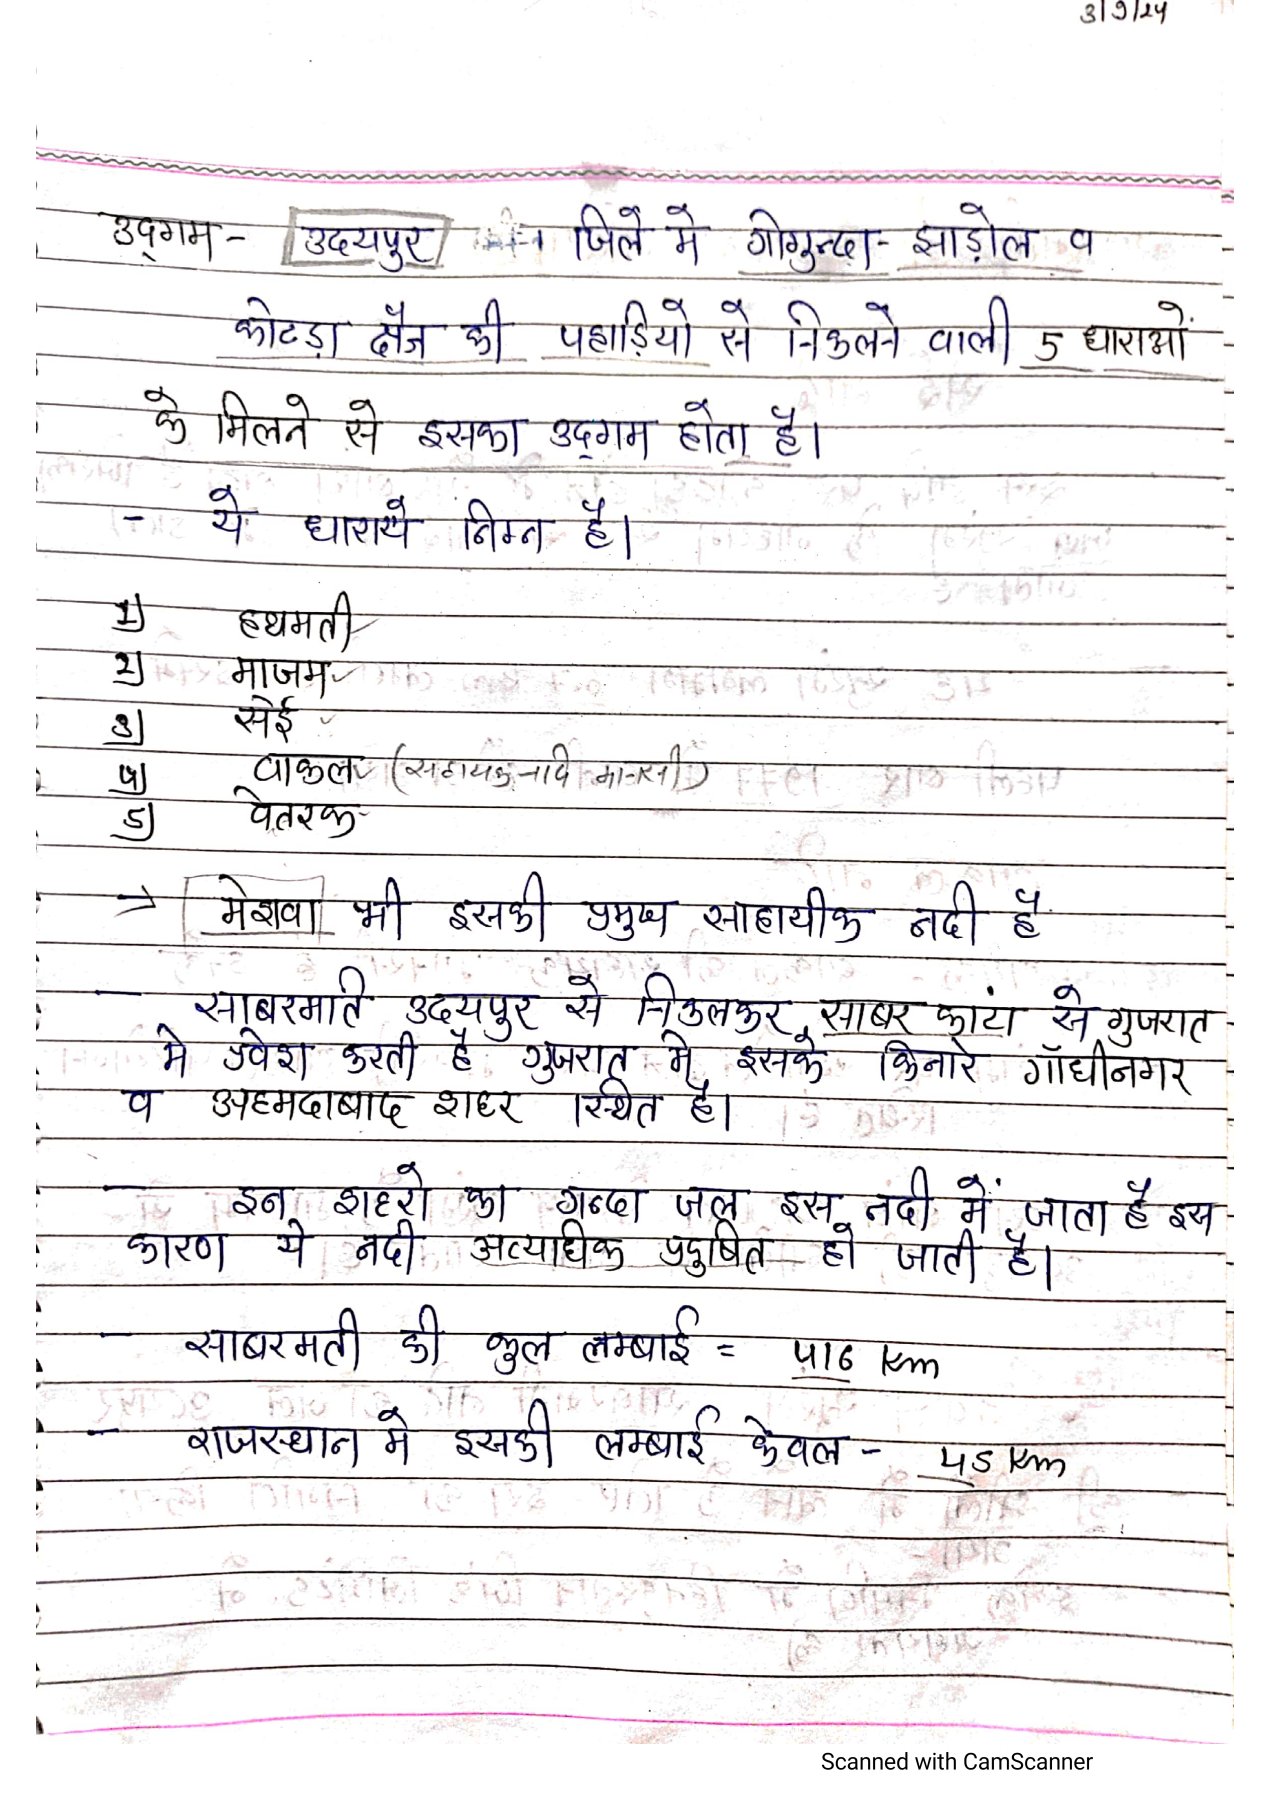 3/9/24
उद्गम - उदयपुर जिले मे गोगुन्दा - झाड़ोल व
कोटड़ा क्षैत्र की पहाड़ियो से निकलने वाली 5 धाराओं
के मिलने से इसका उद्गम होता है।
- ये धाराये निम्न है।
1) हथमती
2) माजम
3) सेई
4) वाकल (सहायक नदि मानसी)
5) वेतरक
→ मेशवा भी इसकी प्रमुख साहायीक नदी है
- साबरमति उदयपुर से निकलकर साबर कांटा से गुजरात
मे प्रवेश करती है गुजरात मे इसके किनारे गाँधीनगर
व अहमदाबाद शहर स्थित है।
- इन शहरो का गन्दा जल इस नदी में जाता है इस
कारण ये नदी अत्याधिक प्रदुषित हो जाती है।
- साबरमती की कुल लम्बाई = 416 Km
- राजस्थान मे इसकी लम्बाई केवल - 45 Km
Scanned with CamScanner